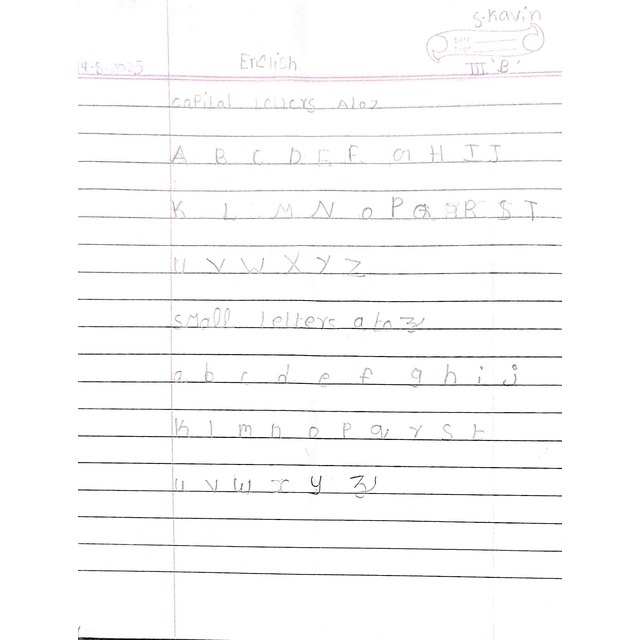 S.Kavin
III 'B'
14-8-2025 English
capital letters A to z
A B C D E F G H I J
K L M N O P Q R S T
U V W X Y Z
small letters a to z
a b c d e f g h i j
k l m n o p q r s t
u v w x y z